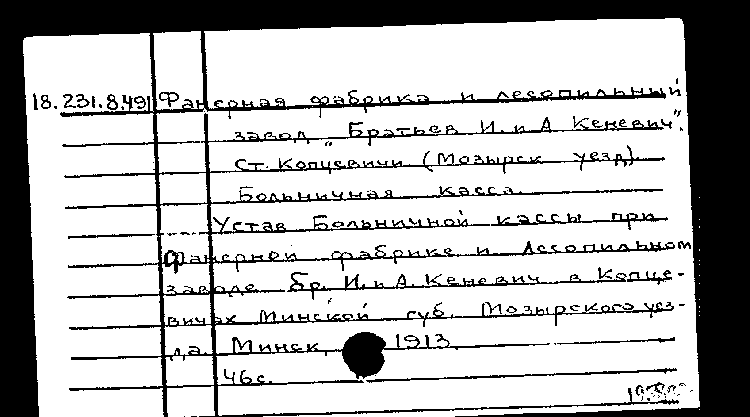 18.231.8.491 Фанерная фабрика и лесопильный
завод „Братьев И. и А. Кеневич".
ст. Копцевичи (Мозырск уезд).
Больничная касса.
Устав Больничной кассы при
фанерной фабрике и лесопильном
заводе Бр. И. и А. Кеневич в Копце-
вичах Минской губ. Мозырского уез-
да. Минск, 1913.
46 с.